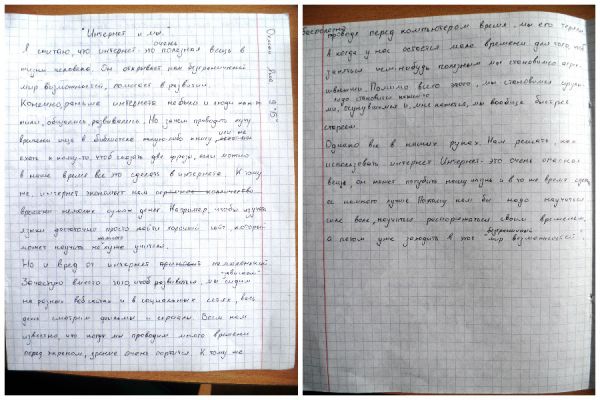 "Интернет и мы"
Я считаю, что интернет-это очень полезная вещь в
жизни человека. Он открывает нам безграничный
мир возможностей, помогает в развитии.
Конечно, раньше интернета не было и люди как-то
жили, общались, развивались. Но зачем проводить кучу
времени ища в библиотеке какую-либо книгу, или же
ехать к кому-то, чтоб сказать две фразы, если можно
в наше время все это сделать в интернете. К тому
же, интернет экономит нам
времени немалые суммы денег. Например, чтобы изучать
языки достаточно просто найти хороший сайт, который
может научить не хуже учителя.
Но и вред от интернет приносит немаленький.
Зачастую вместо того, чтоб развиваться, мы сидим
на разных веб сайтах и в социальных сетях, весь
день смотрим фильмы и сериалы. Всем нам
известно, что когда мы проводим много времени
перед экраном, зрение очень портится. К тому же
бесполезно
проводя перед компьютером время, мы его теряем
А когда у нас остается мало времени для того, чтоб
заняться чем-нибудь полезным мы становимся
Помимо всего этого, мы становимся
и, мне кажется, мы вообще быстрее
стареем.
Однако все в наших руках. Нам решать, как
использовать интернет. Интернет-это очень опасная
вещь, он может погубить нашу жизнь и в то же время сделать
ее намного лучше. Потому нам бы надо научиться
силе воли, научиться распоряжаться своим временем,
а потом уже заходить в этот безграничный мир возможностей.